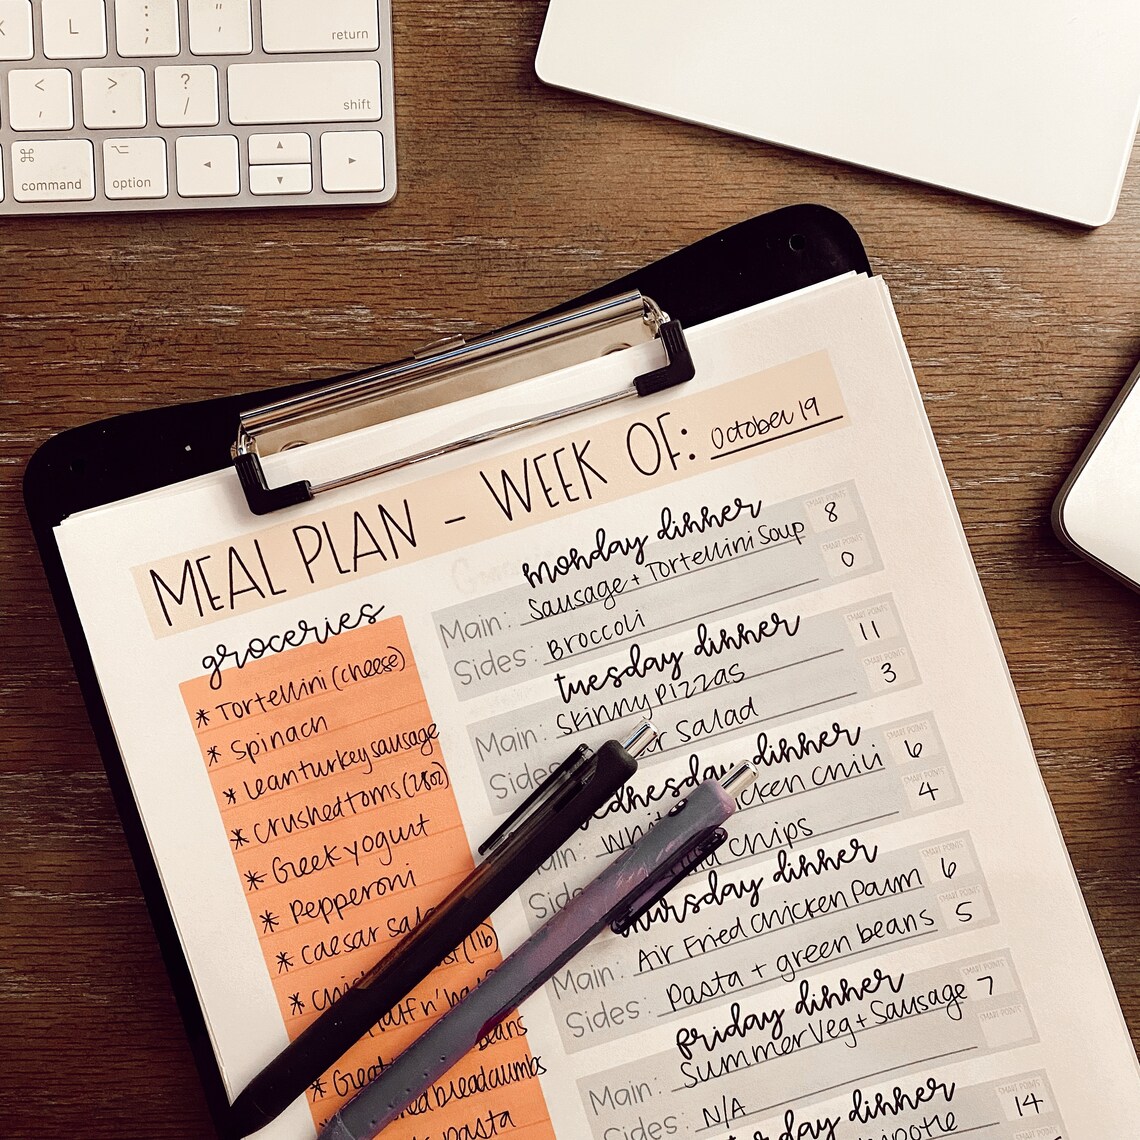 K
L
: ;
" '
return
< ,
> .
? /
shift
⌘
command
⌥
option
◄
▲
▼
►
MEAL PLAN - WEEK OF: October 19
groceries
* Tortellini (cheese)
* Spinach
* leanturkeysausage
* crushed toms (28oz)
* Greek yogurt
* Pepperoni
* caesar
* (1lb)
* Half n'
* Great beans
breadcrumbs
pasta
monday dinner
Main: Sausage + Tortellini Soup
SMART POINTS 8
Sides: Broccoli
SMART POINTS 0
tuesday dinner
Main: Skinny Pizzas
SMART POINTS 11
Sides: Salad
SMART POINTS 3
wednesday dinner
Main: White Chicken Chili
SMART POINTS 6
Sides: Chips
SMART POINTS 4
thursday dinner
Main: Air Fried Chicken Parm
SMART POINTS 6
Sides: Pasta + green beans
SMART POINTS 5
friday dinner
Main: Summer Veg + Sausage
SMART POINTS 7
Sides: N/A
SMART POINTS
dinner
SMART POINTS 14